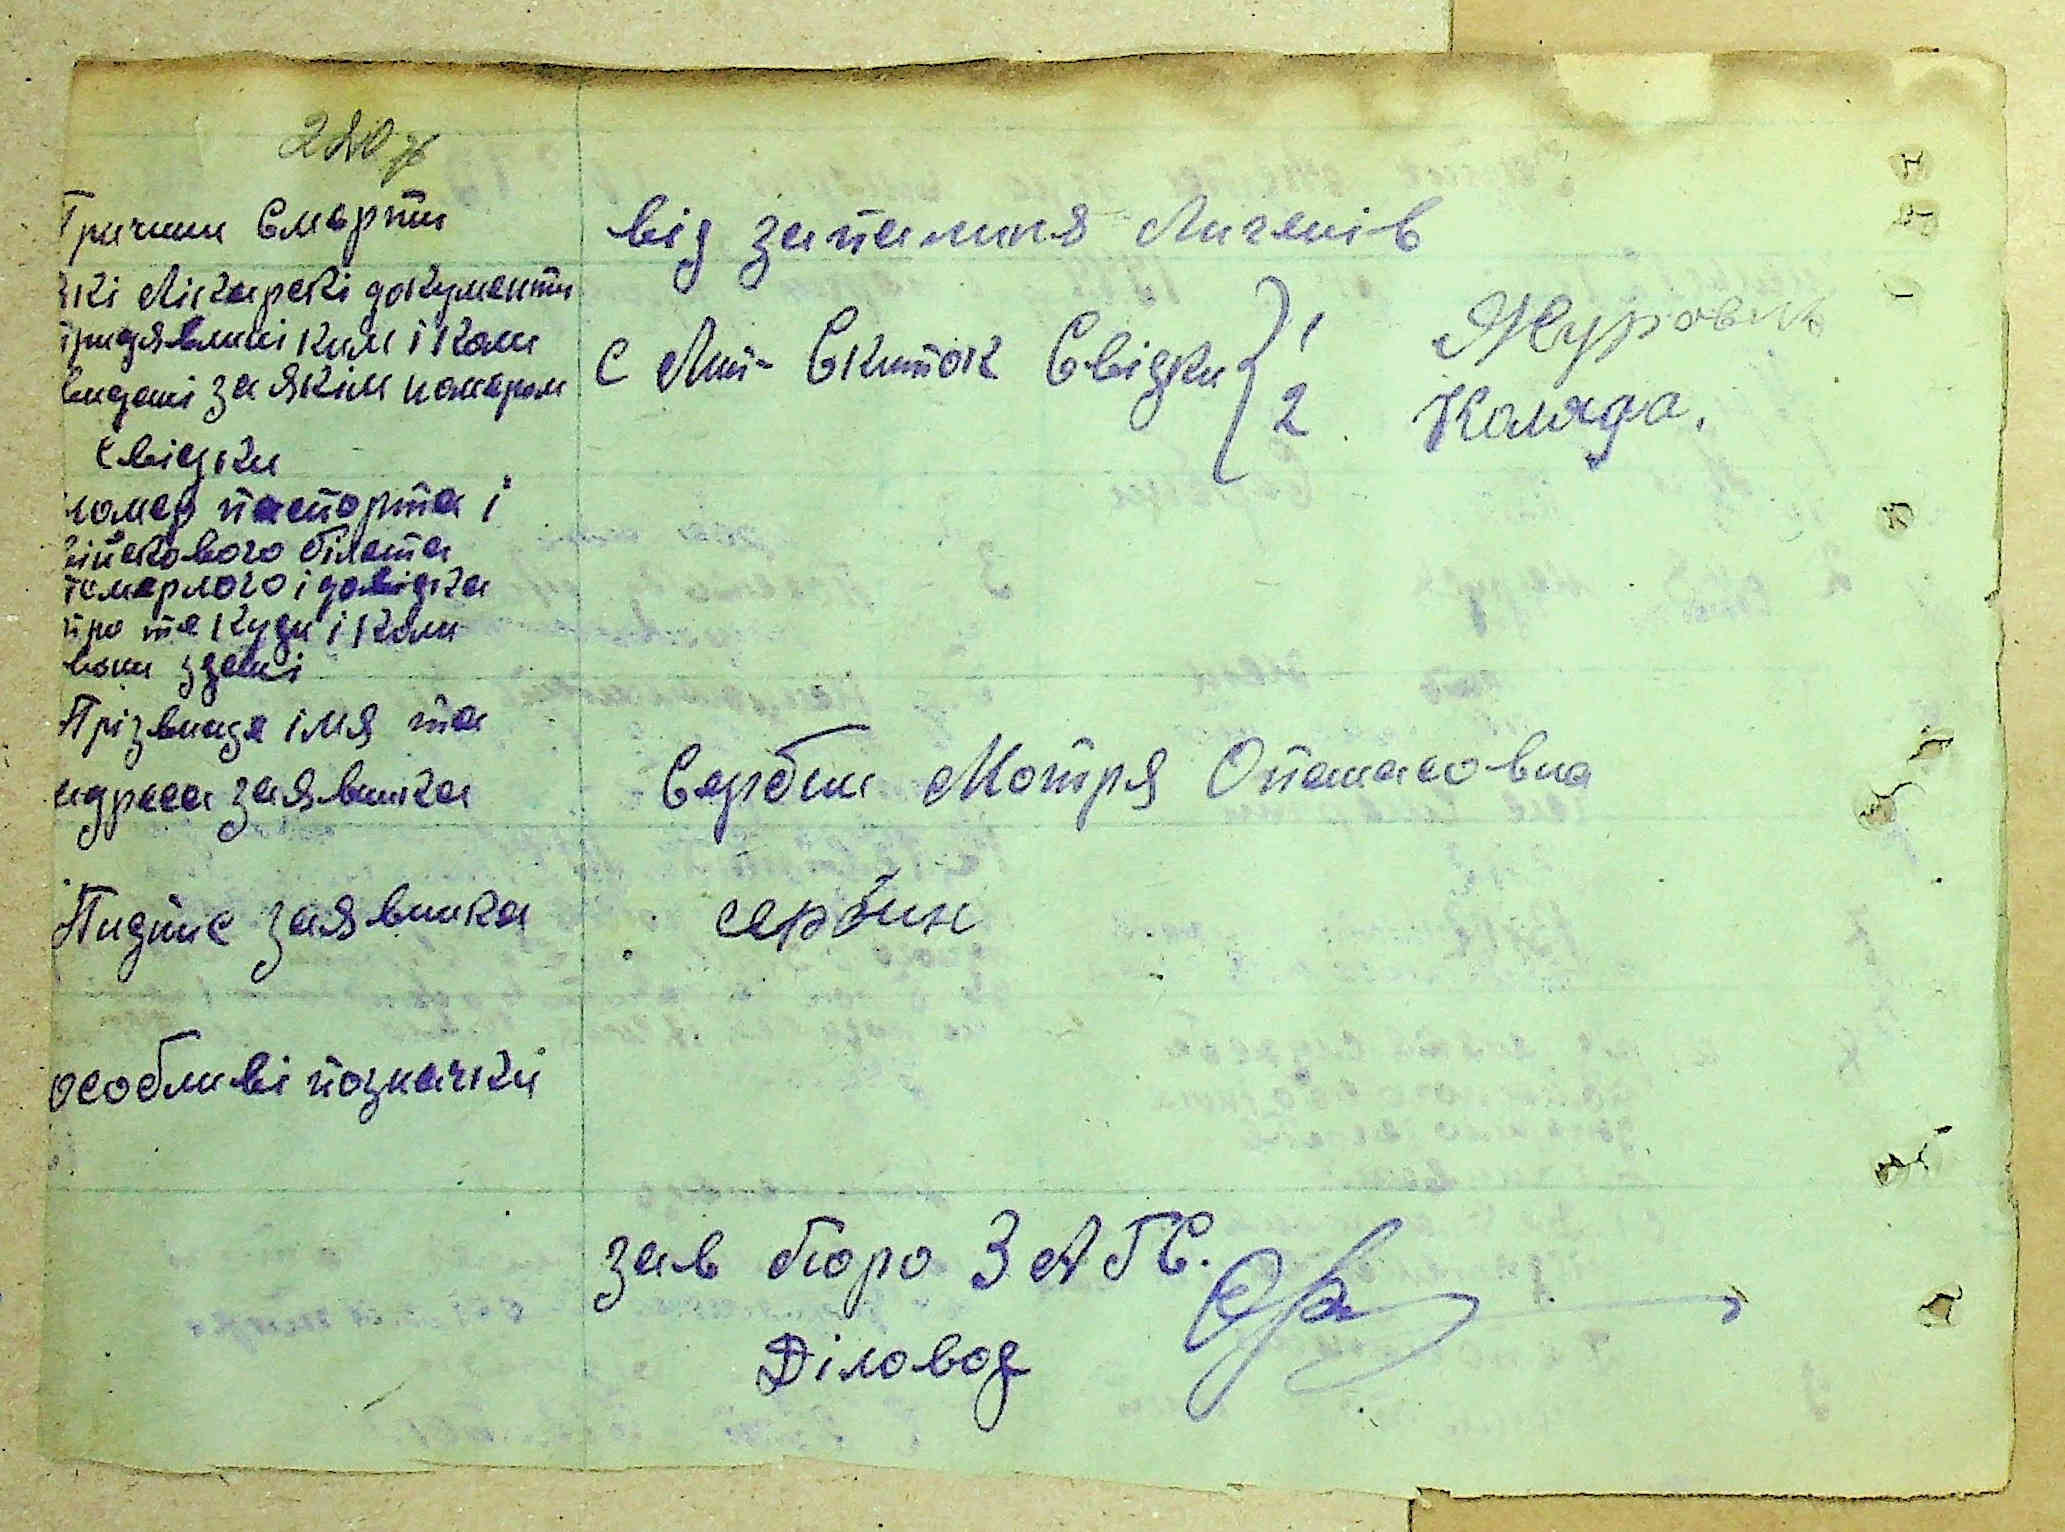 Причини Смерти
від запалиня Лигенів
які Лікарскі документи
придявлині ким і коли
видані за якім номаром
свідки
С Лип- Скиток Свідки
1
2 Коляда.
номер паспорта і
війскового білета
померлого і довідка
про те куди і коли
вони здані
Прізвища імя та
адреса заявника
Сербин Мотря Опанасовна
Підпис заявника
сербин
особливі позначкі
зав бюро ЗАГС.
Діловод